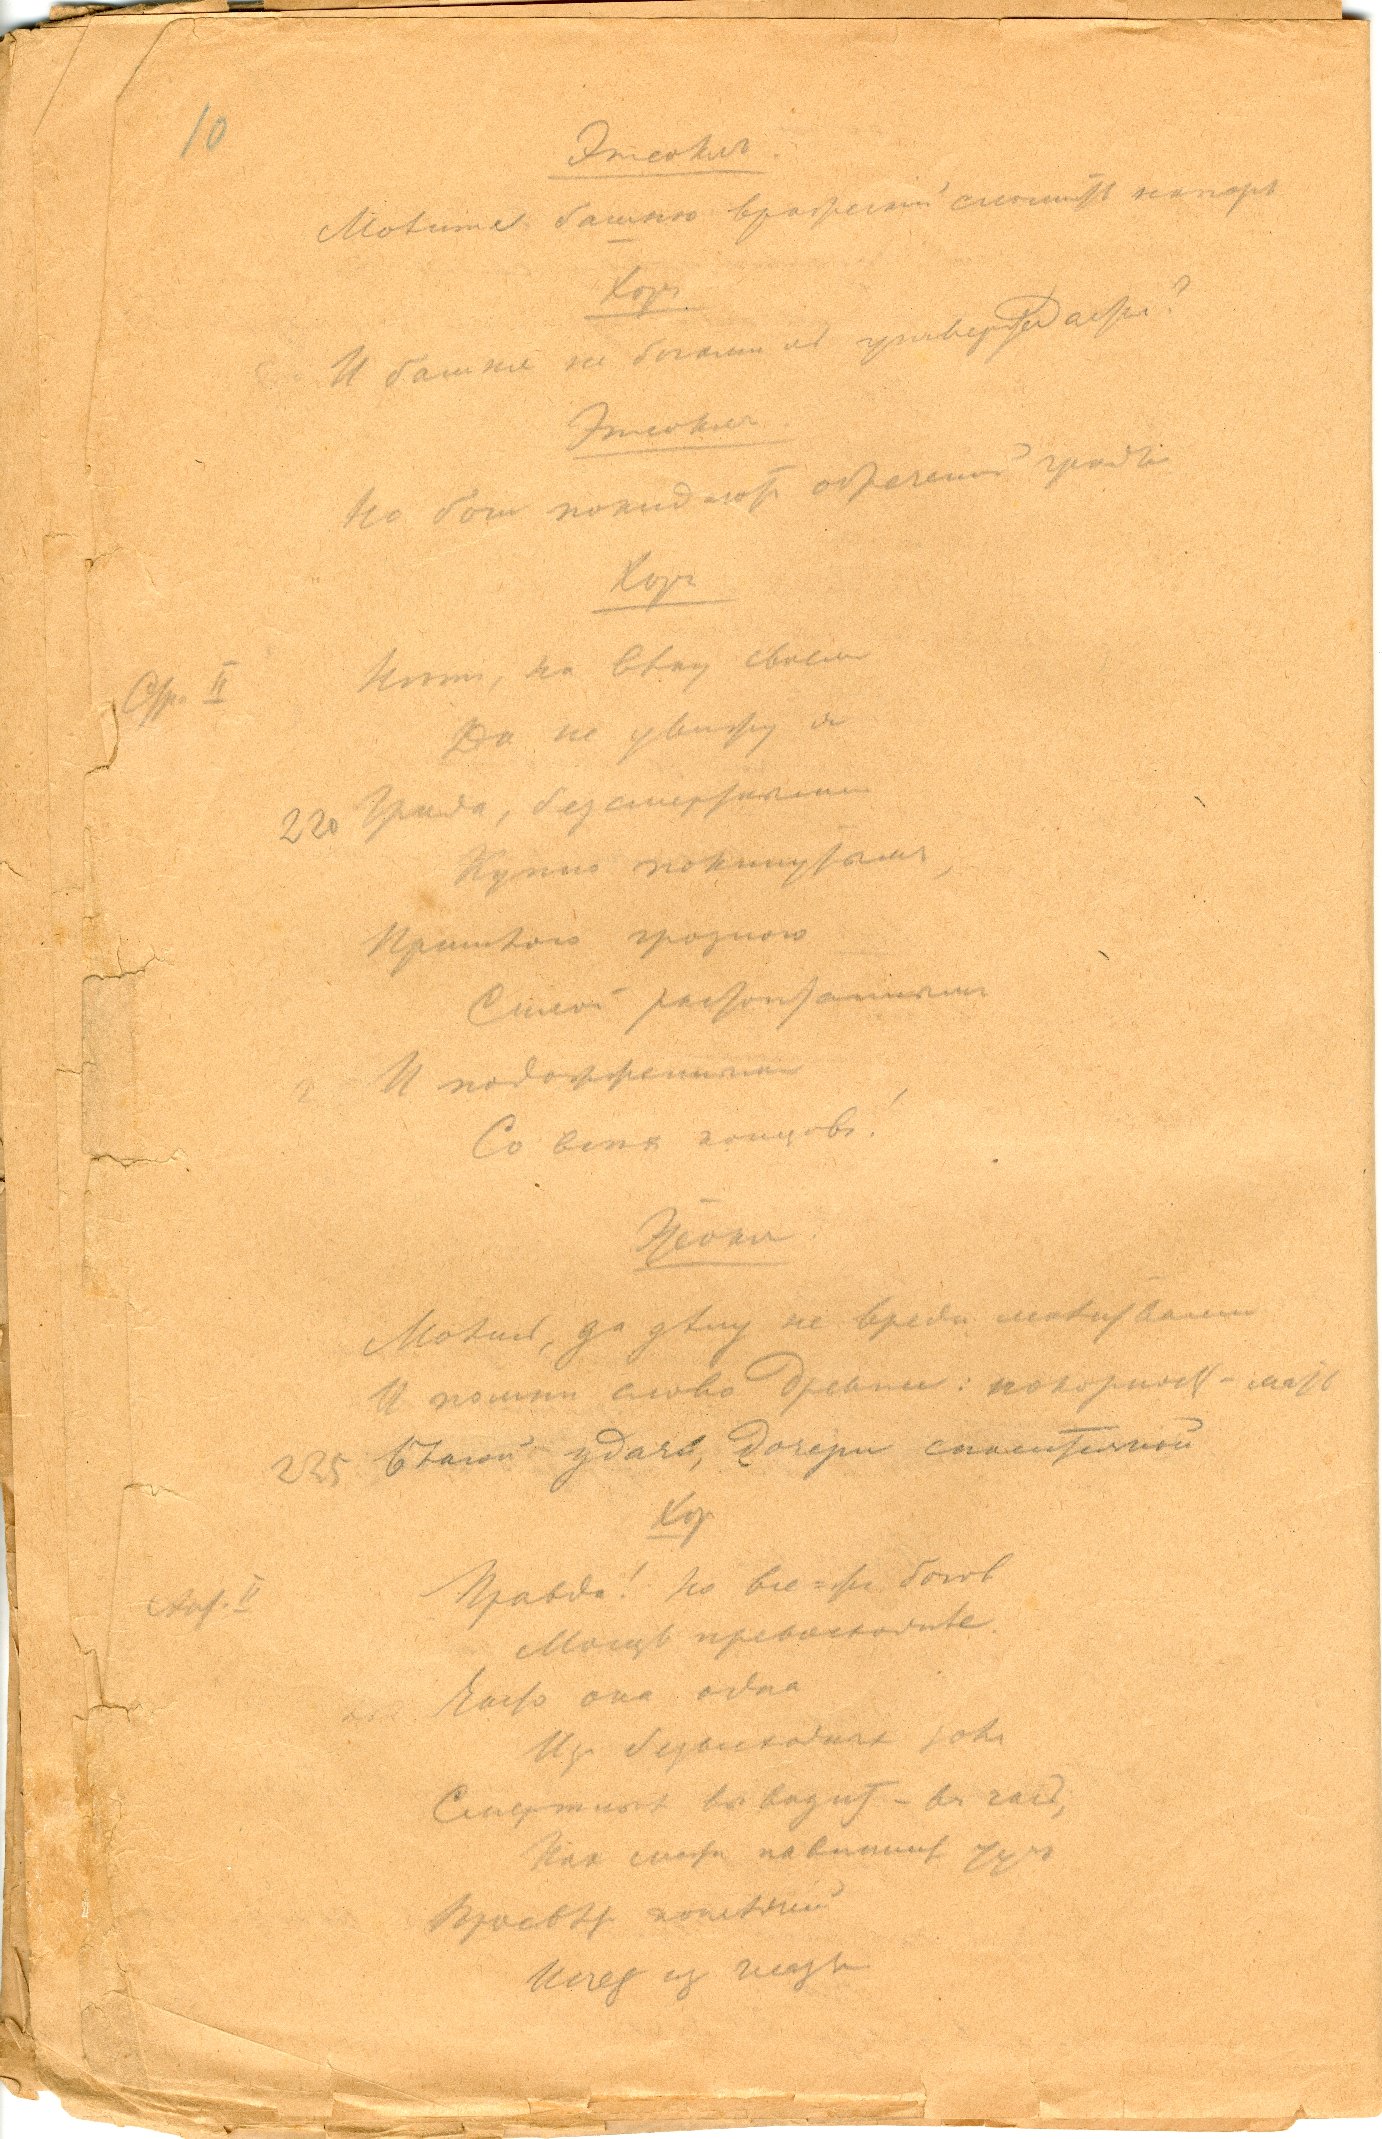 10
Этеоклъ.
Молитесь башню вражескій сломить напоръ
Хоръ
И башня не богами ль утверждается?
Этеоклъ.
Но боги покидаютъ обреченный градъ
Хоръ
Стр. II
на вѣку своемъ
Да не увижу я
220 Града, безсмертными
Купно покинутымъ,
грозною
Силой растоптаннымъ
И подожженнымъ
Со всѣхъ концовъ!
Этеокл
Молись, да дѣлу не вреди
И помни слово древнее: покорность – мать
225 Благой удачѣ, дочери спасительной
Хор
Ант. II
Правда! Но все-же богов
Мощь превосходнѣе.
Часто она одна
Из безысходных золъ
Смертных выводит – в час,
Как мрак нависших туч
Просвѣт
Исчез из глаз